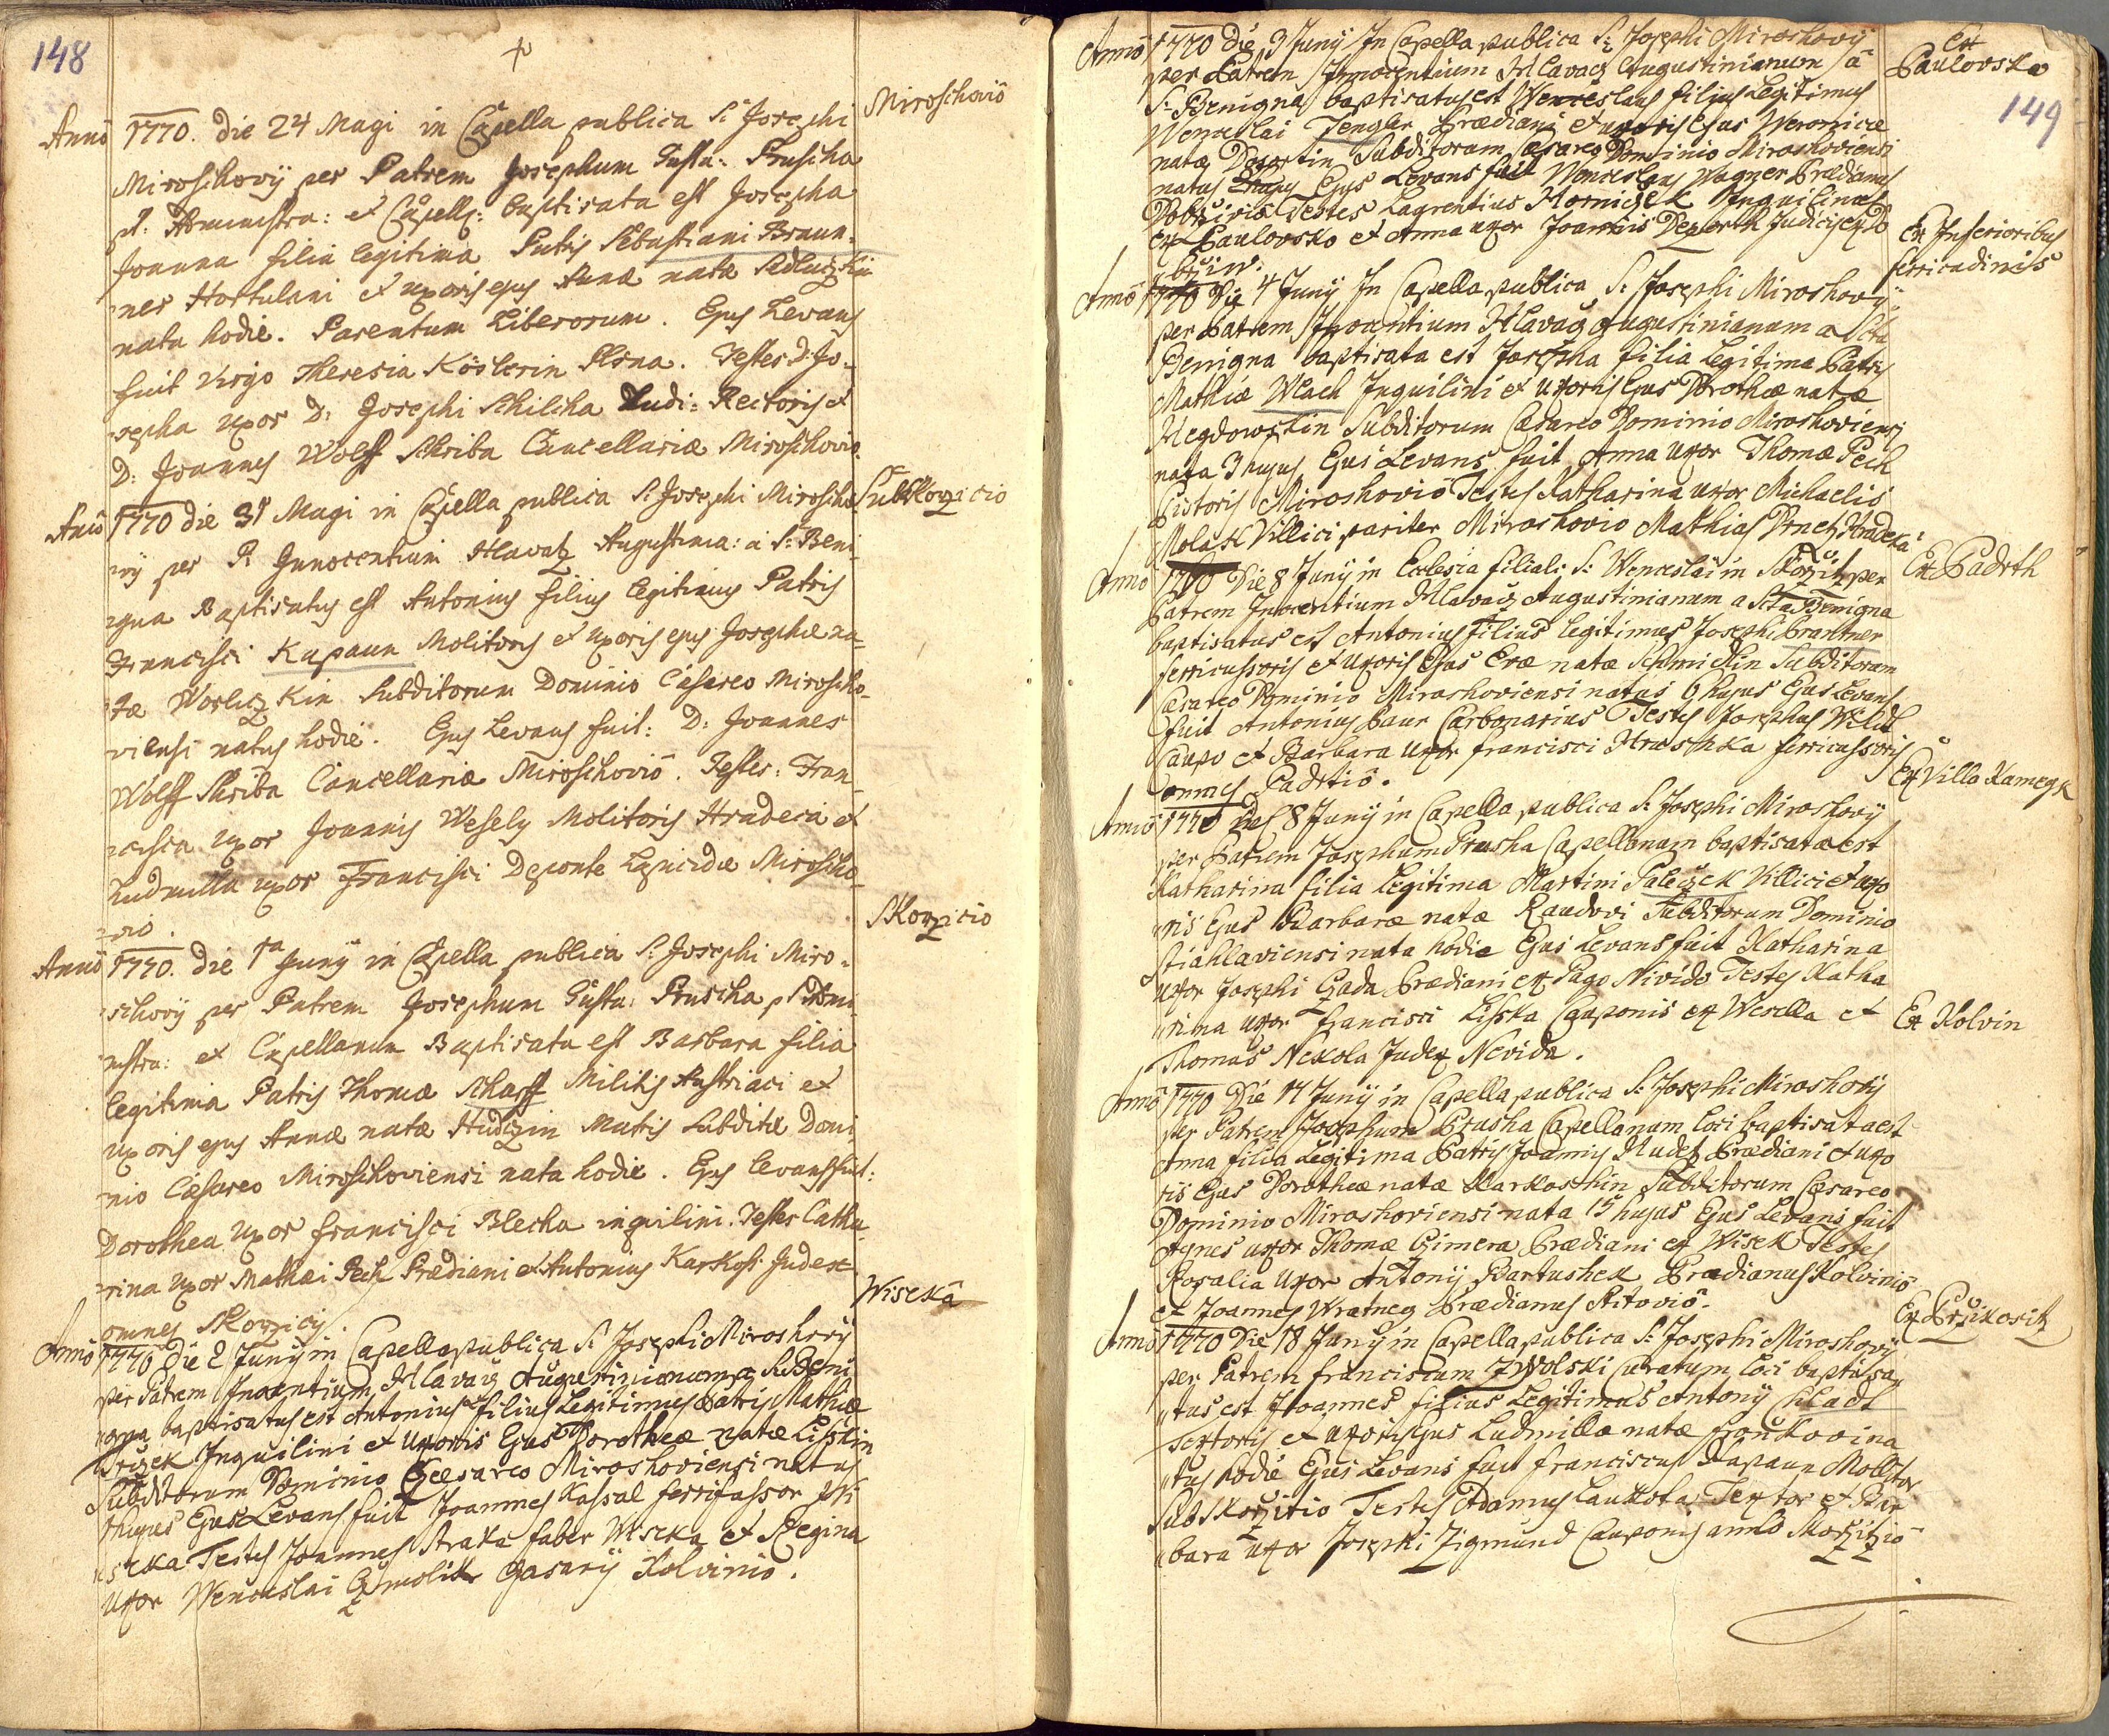 148
+
Miroschoviô
Annô 1770. die 24 Magi in Capella publica S: Josephi
Miroschovÿ per Patrem Josephum Pruscha
p:t: Administra: et Capell: baptisata est Josepha
Joanna filia legitima Patris Sebastiani Braun-
ner Hortulani et uxoris ejus Annæ natæ
nata hodie. Parentum Liberorum. Ejus Levans
fuit Virgo Theresia Köslerin Plsna. Testes D: Jo-
sepha uxor D: Josephi Schilcha Ludi-Rectoris et
D: Joannes Wolff Schriba Cancellariæ Miroschoviô
Subskorzicio
Annô 1770 die 31 Magi in Capella publica S: Josephi Miroscho-
vÿ per P. Innocentium Hlavatz Augustinia: a S: Beni
gna Baptisatus est Antonius filius legitimus Patris
Francisci Kapaun Molitoris et uxoris ejus Josephæ na-
tæ Worliczkin Subditorum Dominio Cæsareo Miroscho-
viensi natus hodie. Ejus Levans fuit: D: Joannes
Wolff Schriba Cancellariæ Miroschoviô. Testes: Fran-
cisca uxor Joannis Wesely Molitoris Hradeca et
Ludmilla uxor Francisci Deponte Lapicidæ Miroscho-
viô.
Skorzicio
Annô 1770. die 1ma Junÿ in Capella publica S: Josephi Miro-
schovÿ per Patrem Josephum Pruscha p:t: Admi
nistra: et Capellanum Baptisata est Barbara filia
legitima Patris Thomæ Scharff Militis Austriaci et
uxoris ejus Annæ natæ Hudczin Matris Subditæ Domi
nio Cæsareo Miroschoviensi nata hodie. Ejus levans fuit:
Dorothea uxor francisci Blecha inquilini. Testes Catha-
rina uxor Mathæi Pech Prædiani et Antonius Karkosh Judex
omnes Skorzicÿ.
Wiscka
Annô 1770 Die 2 Junÿ in Capella publica S: Josephi Miroshovÿ
per Patrem Inocentium Hlavacz Augustinianum a S: Beni
gna baptisatus est Antonius filius Legitimus Patris Mathiæ
Inquilini et Uxoris Ejus Dorotheæ natæ
Subditorum Dominio Cæsareo Miroshoviensi natus
hujus Ejus Levans fuit Joannes Kassal
Testes Joannes Straka faber Wiscka et Regina
Uxor Wenceslai Kolvinio.
149
Annô 1770 die 3 Junÿ In Capella publica S: Josephi Miroshovÿ
Ex
Paulovsko
per Patrem Innocentium Hlavacz Augustinianum a
S: Benigna baptisatus est Wenceslaus filius Legitimus
Wenceslai Zengler Prædiani et uxoris Ejus Weronicæ
natæ Subditorum Cæsareo Dominio Miroshoviensi
natus Ejus Levans fuit Wenceslaus Wagner Prædianus
Dobrziviô Testes Laurentius Inquilinus
ex Paulovsko et Anna uxor Joannis Deporth Judicis ex Do
brziw.
Ex Inferioribus
ferricudiniis
Annô 1770 Die 4 Junÿ In Capella publica S: Josephi Miroshovÿ
per Patrem Inocentium Hlavacz Augustinianum a Scta
Benigna baptisata est Josepha filia Legitima Patris
Mathiæ Wlach Inquilini et Uxoris Ejus Dorotheæ natæ
Subditorum Cæsareo Dominio Miroshoviensi
nata 3 hujus Ejus Levans fuit Anna Uxor Thomæ Pech
Pistoris Miroshoviô Testes Katharina Uxor Michaelis
Villici pariter Miroshovio Mathias
Ex Padrth
Annô 1770 Die 8 Junÿ in Ecclesia filiali S: Wenceslai in Skorzitz per
Patrem Inocentium Hlavacz Augustinianum a Scta Benigna
baptisatus est Antonius Filius Legitimus Josephi Brantner
ferricussoris et Uxoris Ejus Evæ natæ Schmidlin Subditorum
Cæsareo Dominio Miroshoviensi natus 6 hujus Ejus Levans
fuit Antonius Paur Carbonarius Testes Josephus Wildt
Caupo et Barbara Uxor francisci Hraschka ferricussoris
omnes Padrtiô.
Ex Villa Kamegk
Annô 1770 Die 8 Junÿ in Capella publica S: Josephi Miroshovÿ
per Patrem Josephum Prusha Capellanum baptisata est
Katharina filia Legitima Martini Paleczek Villici et uxo
ris Ejus Barbaræ natæ Raudovi Subditorum Dominio
Stiahlaviensi nata hodie Ejus Levans fuit Katharina
Uxor Josephi Czada Prædiani ex Pago Nivido Testes Katha
rina uxor francisci Lisska Cauponis ex Wesella et
Thomas Nexola Judex Nevida.
Ex Kolvin
Annô 1770 Die 17 Junÿ in Capella publica S: Josephi Miroshovÿ
per Patrem Josephum Prusha Capellanum loci baptisata est
Anna filia Legitima Patris Joannis Prædiani et uxo
ris Ejus Dorotheæ natæ Karkoshin Subditorum Cæsareo
Dominio Miroshoviensi nata 15 hujus Ejus Levans fuit
Agnes uxor Thomæ Czimera Prædiani ex Wisek Testes
Rosalia Uxor Antonÿ Bartushek Prædianus Kolviniô
et Joannes Wratney Prædianus Stitoviô.
Ex Przikositz
Annô 1770 Die 18 Junÿ in Capella publica S: Josephi Miroshovÿ
per Patrem franciscum Zwolski curatum loci baptisa
tus est Joannes filius Legitimus Antonÿ Chladt
Textoris et uxoris Ejus Ludmillæ natæ
tus hodie Ejus Levans fuit franciscus Kapaun Molitor
Subskorzitio Testes Adamus Laukota Textor et Bar
bara uxor Josephi Zigmund Cauponis ambo Skorzitzio